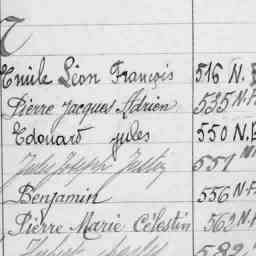 Emile Léon François 516 N.
Pierre Jacques Adrien 535 N.
Edouard Jules 550 N.
Jules Joseph 551
Benjamin 556 N.
Pierre Marie Célestin 562 N.
582